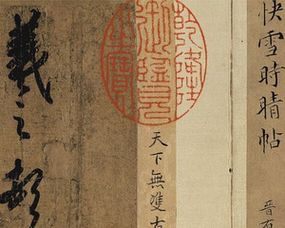 快雪時晴帖
晉右
天下無雙古
乾隆
御覽
之寶
羲之頓